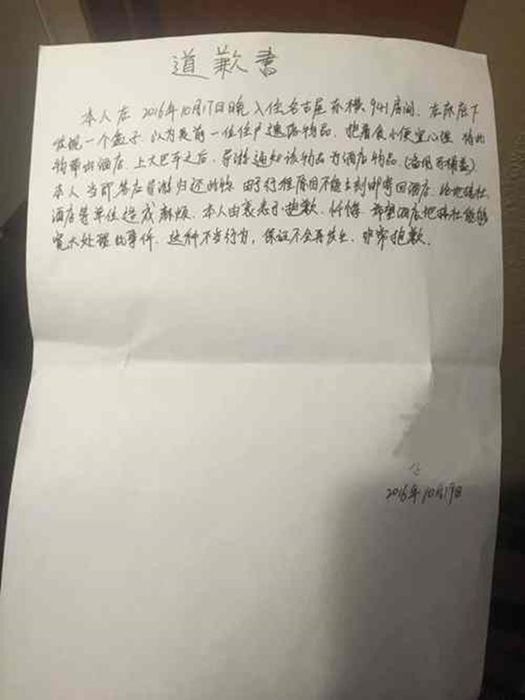 道歉書
本人在 2016年10月17日晚入住名古屋东横941房间.在床底下
发现一个盒子.以为是前一位住户遗落物品.抱着贪小便宜心理.将此
物带出酒店.上大巴车之后.导游通知该物品为酒店物品.(备用马桶盖).
本人当即答应导游归还此物.由于行程原因不能立刻邮寄回酒店.给地接社.
酒店等单位造成麻烦.本人由衷表示抱歉.忏悔.希望酒店地接社能够
宽大处理此事件.这种不当行为,保证不会再发生.非常抱歉.
2016年10月19日